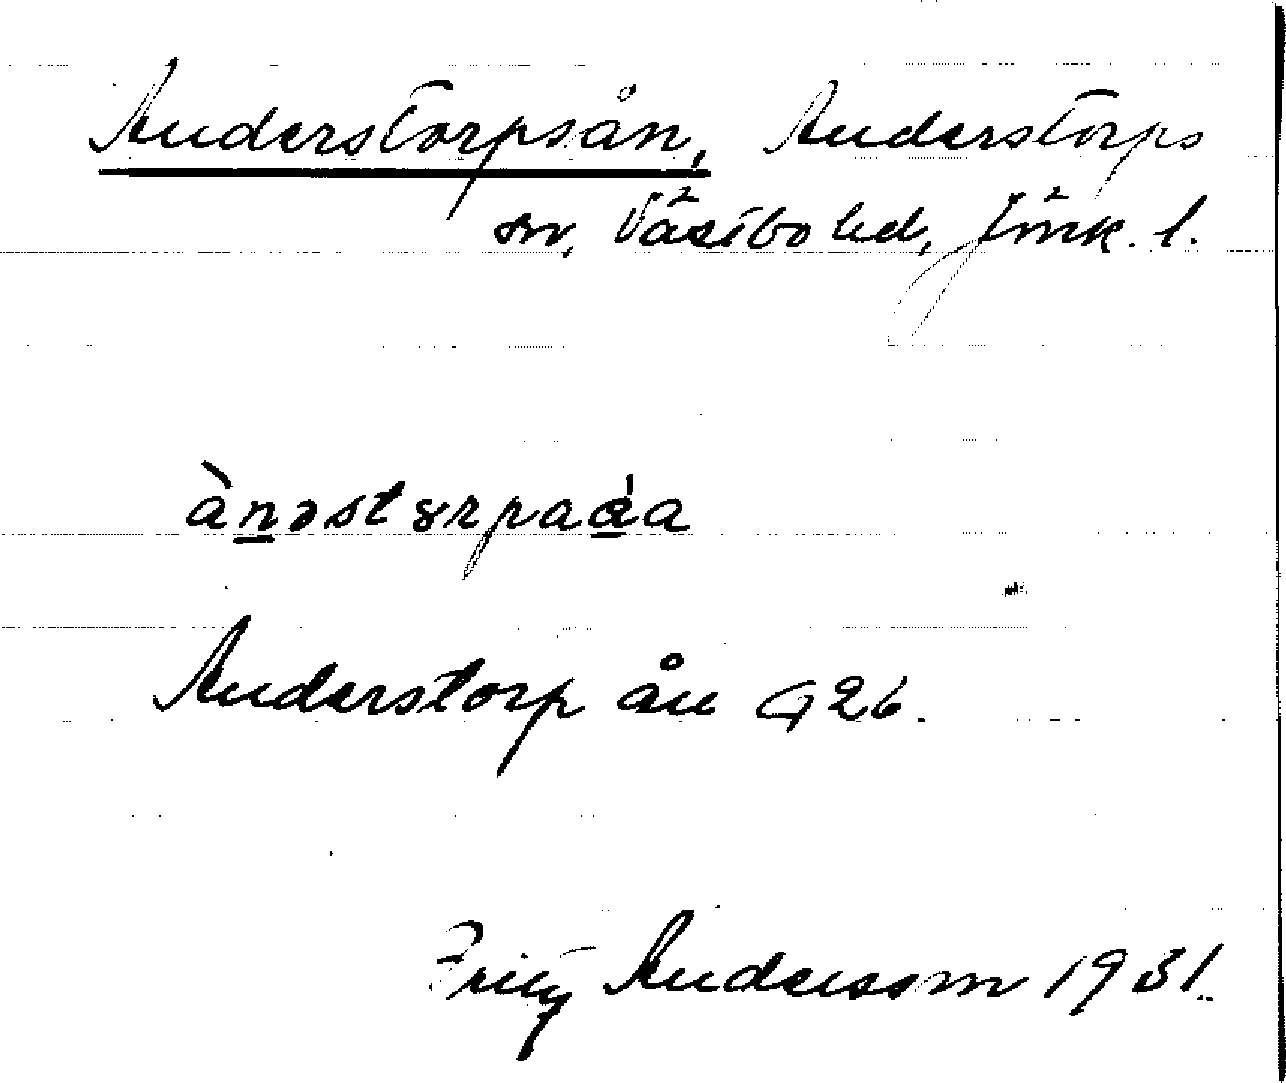 Anderstorpsån, Anderstorps
sn, Västbo hd, Jönk. l.
ànəstɤrpaáa
Anderstorp ån G 26.
Fritz Andersson 1931.